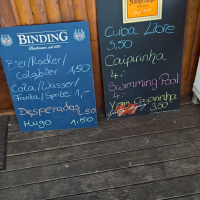 BINDING
Bier/Radler/
Colabier 1,50
Cola/Wasser/
Fanta/Sprite 1,-
Desperados 2,50
Hugo 1,50
Cuba Libre
3,50
Caipirinha
4,-
Swimming Pool
4,-
Caipirinha
3,50